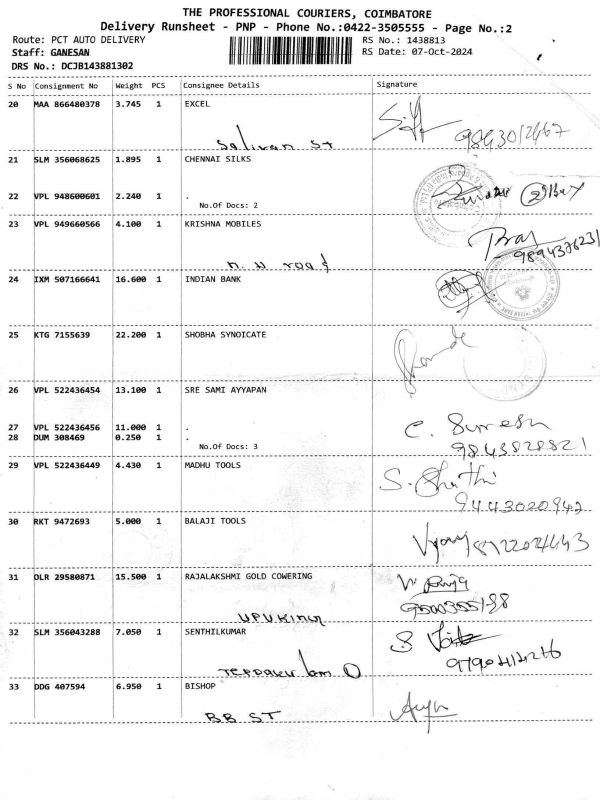 THE PROFESSIONAL COURIERS, COIMBATORE
Delivery Runsheet - PNP - Phone No.:0422-3505555 - Page No.:2
Route: PCT AUTO DELIVERY RS No.: 1438813
Staff: GANESAN RS Date: 07-Oct-2024
DRS No.: DCJB143881302
S No Consignment No Weight PCS Consignee Details Signature
20 MAA 866480378 3.745 1 EXCEL
Salivan St
21 SLM 356068625 1.895 1 CHENNAI SILKS
22 VPL 948600601 2.240 1 .
No.Of Docs: 2
23 VPL 949660566 4.100 1 KRISHNA MOBILES
24 IXM 507166641 16.600 1 INDIAN BANK
25 KTG 7155639 22.200 1 SHOBHA SYNOICATE
26 VPL 522436454 13.100 1 SRE SAMI AYYAPAN
27 VPL 522436456 11.000 1 .
C. Suresh
28 DUM 308469 0.250 1 .
No.Of Docs: 3
9843828821
29 VPL 522436449 4.430 1 MADHU TOOLS
9443020942
30 RKT 9472693 5.000 1 BALAJI TOOLS
31 DLR 29580871 15.500 1 RAJALAKSHMI GOLD COWERING
32 SLM 356043288 7.050 1 SENTHILKUMAR
33 DDG 407594 6.950 1 BISHOP
BB ST